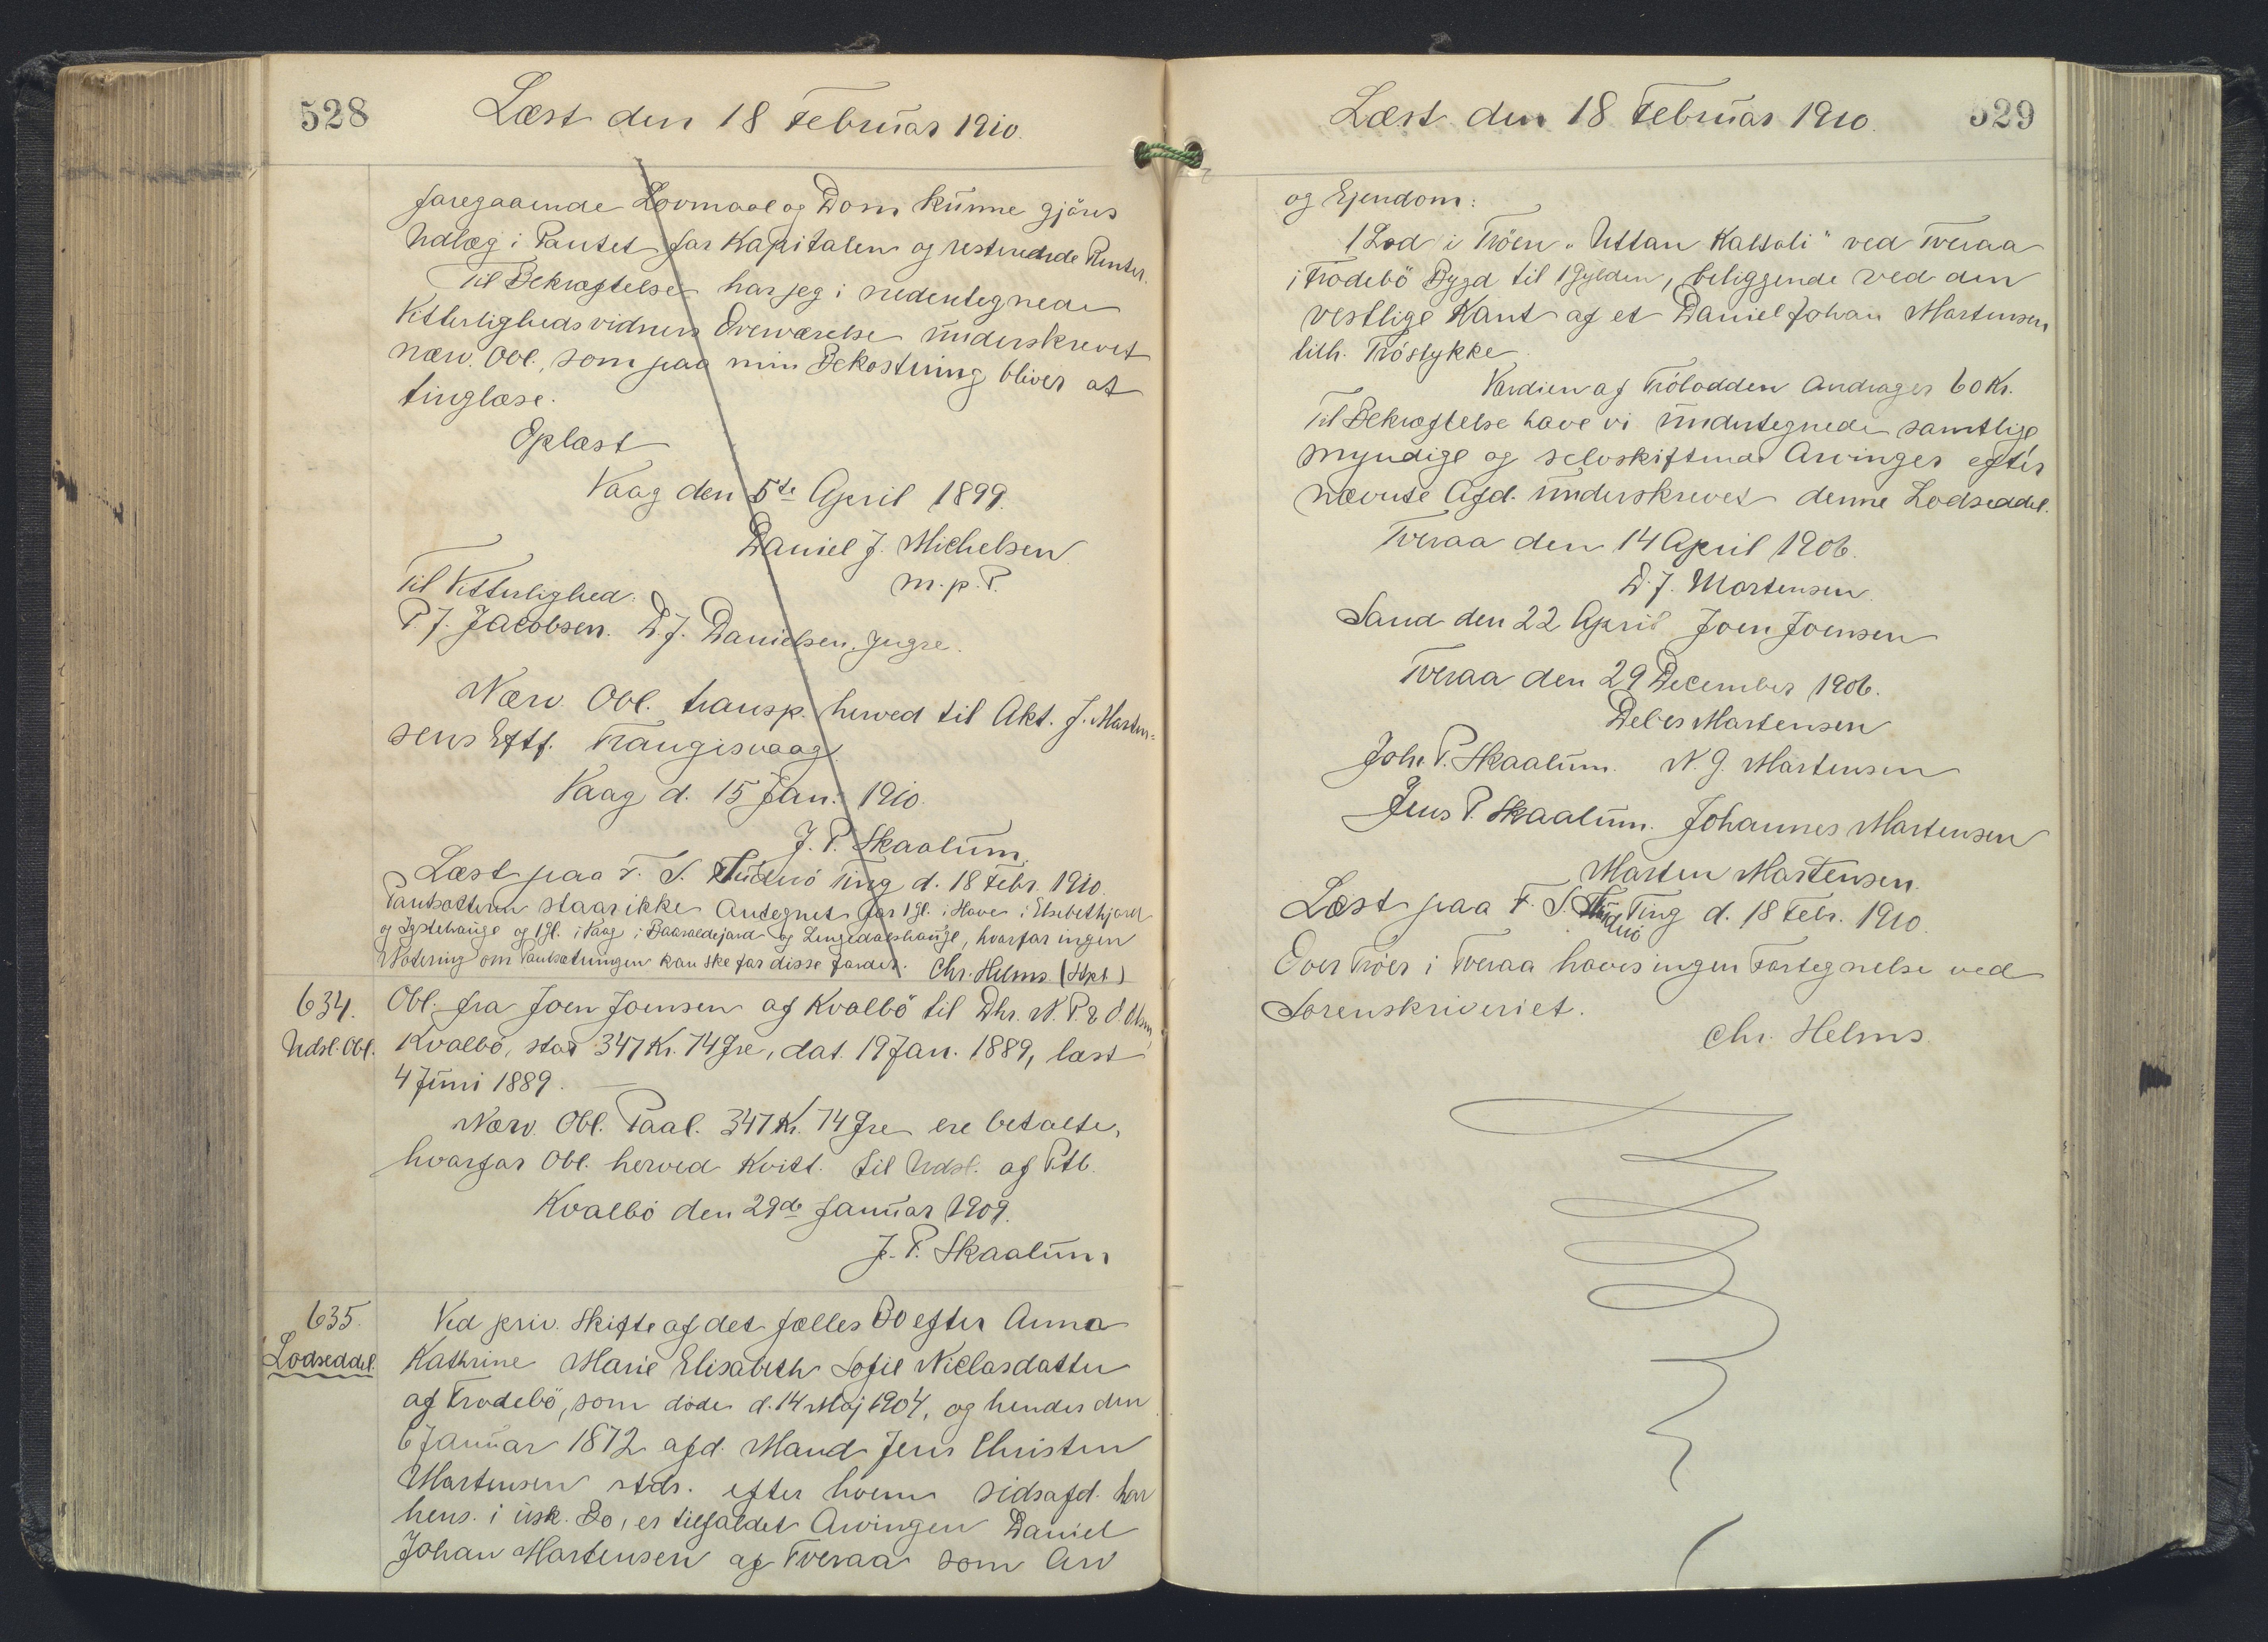 528
Læst den 18 Februar 1910.
foregaaende Lovmaal og Dom kunne gjöres
Udlæg i Pantet for Kapitalen og resterende Renter.
Til Bekræftelse har jeg i nedentegnede
Vitterlighedsvidners Overværelse underskrevet
nærv. Obl., som paa min Bekostning bliver at
tinglæse.
Oplæst
Vaag den 5te April 1899.
Daniel J. Michelsen
m. p. P.
Til Vitterlighed:
P. J. Jacobsen. D. J. Danielsen,
Nærv. Obl. transp. herved til Akt. J. Morten-
sens Eftf. Trangisvaag.
Vaag d. 15 Jan. 1910.
J. P. Skaalum.
Læst paa F. S. Suderö Ting d. 18 Febr. 1910.
Pantsætteren staar ikke antegnet for 1 gl. i Hove i
og og 1 gl. i Vaag i og hvorfor ingen
Notering om Pantsætningen kan ske for disse Jorder. Chr. Helms (Hpl)
634.
Udsl. Obl.
Obl. fra Joen Joensen af Kvalbö til Dhr. N. P. & O. Olsen,
Kvalbö, stor 347 Kr. 74 Øre, dat. 19 Jan. 1889, læst
4 Juni 1889.
Nærv. Obl. Paal. 347 Kr. 74 Øre ere betalte,
hvorfor Obl. herved kvitt. til Udsl. af Ptb.
Kvalbö den 29de Januar 1909.
J. P. Skaalum
635.
Lodseddel.
Ved priv. Skifte af det fælles Bo efter Anna
Kathrine Marie Elisabeth Sofie Niclasdatter
af Frodebö, som døde d. 14 Maj 1904, og hendes den
6 Januar 1872 afd. Mand Jens Christen
Mortensen stds. efter hvem sidsafd. har
hens. i usk. Bo, er tilfaldet Arvingen Daniel
Johan Mortensen af Tveraa som Arv
529
Læst den 18 Februar 1910.
og Ejendom:
1 Lod i Tröen „Uttan Kaltali" ved Tveraa
i Frodebö Bygd til 1 Gylden, beliggende ved den
vestlige Kant af et Daniel Johan Mortensen
tilh. Tröstykke
Værdien af Trölodden andrager 60 Kr.
Til Bekræftelse have vi undertegnede samtlige
myndige og selvskiftende Arvinger efter
nævnte Afd. underskrevet denne Lodseddel.
Tveraa den 14 April 1906.
D. J. Mortensen.
Sand den 22 April Joen Joensen
Tveraa den 29 December 1906.
Debes Mortensen
Joh. P. Skaalum. N. J. Mortensen
Jens P. Skaalum. Johannes Mortensen
Morten Mortensen.
Læst paa F. S. Suderö Ting d. 18 Febr. 1910.
Over Tröer i Tveraa haves ingen Fortegnelse ved
Sorenskriveriet.
Chr. Helms.